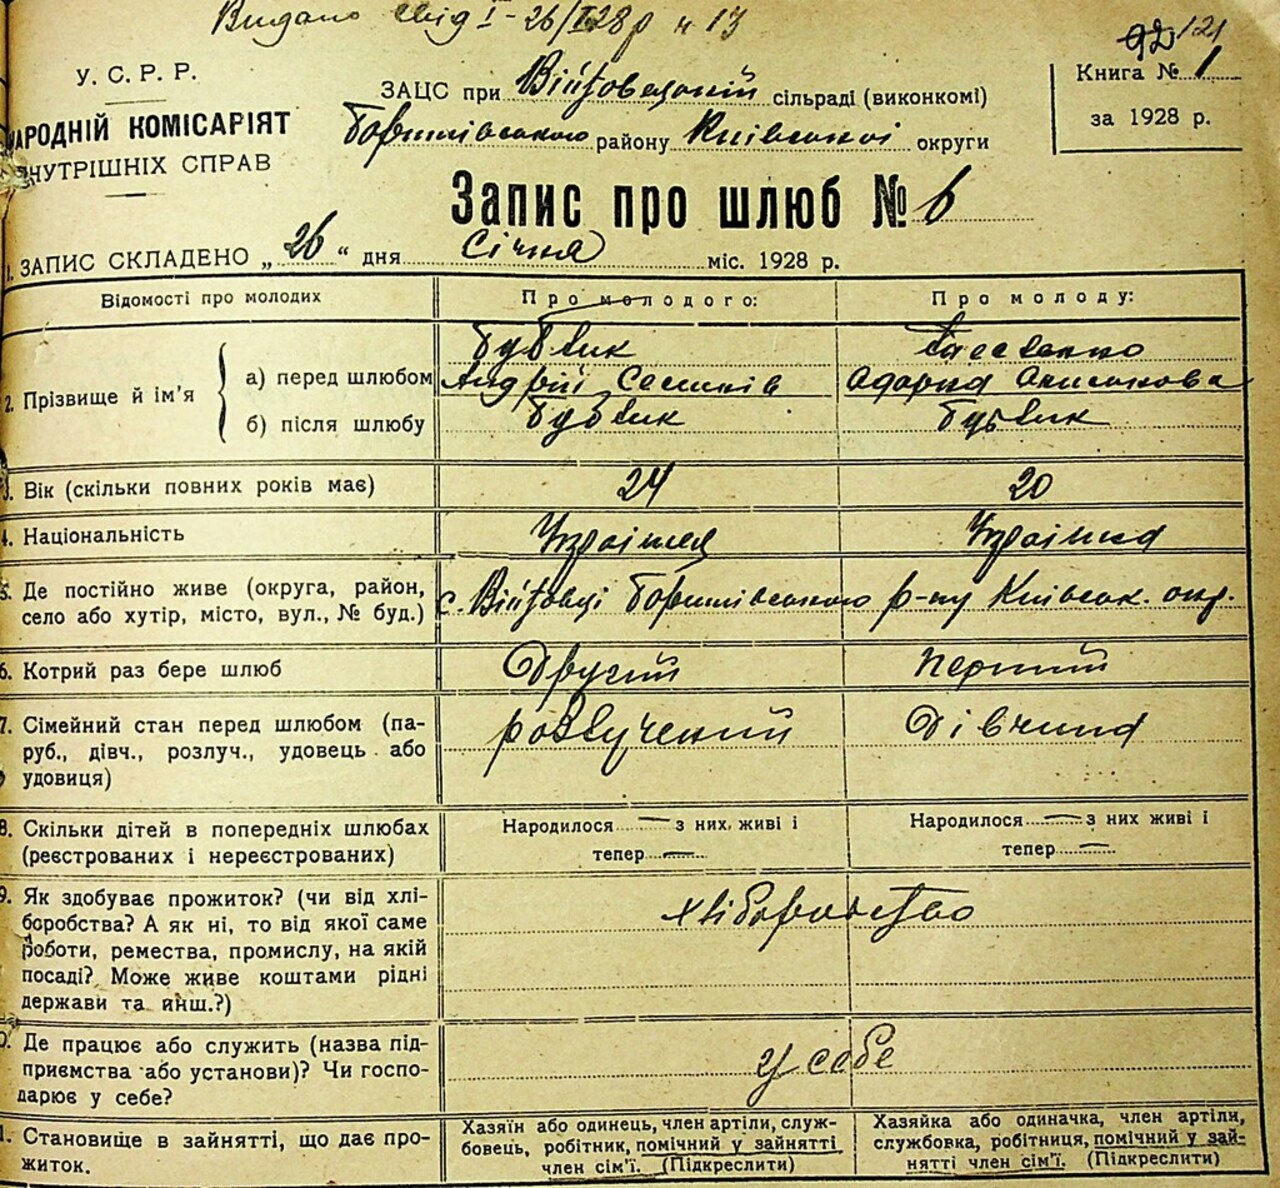 Видано свід I-26/I 28р н 13
92 121
У. С. Р. Р.
НАРОДНІЙ КОМІСАРІЯТ
ВНУТРІШНІХ СПРАВ
ЗАЦС при Війтовецькій сільраді (виконкомі)
району Київської округи
Книга № 1
за 1928 р.
Запис про шлюб № 6
1. ЗАПИС СКЛАДЕНО „ 26 “ дня Січня міс. 1928 р.
Відомості про молодих
Про молодого:
Про молоду:
2. Прізвище й ім'я
а) перед шлюбом
Андрій
Одарка
б) після шлюбу
3. Вік (скільки повних років має)
24
20
4. Національність
Українец
Українка
5. Де постійно живе (округа, район,
село або хутір, місто, вул., № буд.)
с. Війтовці р-ну Київськ. окр.
6. Котрий раз бере шлюб
Другий
перший
7. Сімейний стан перед шлюбом (па-
руб., дівч., розлуч., удовець або
удовиця)
розлученний
Дівчина
8. Скільки дітей в попередніх шлюбах
(реєстрованих і нереєстрованих)
Народилося — з них живі і
тепер —
Народилося — з них живі і
тепер —
9. Як здобуває прожиток? (чи від хлі-
боробства? А як ні, то від якої саме
роботи, ремества, промислу, на якій
посаді? Може живе коштами рідні
держави та инш.?)
хліборобство
10. Де працює або служить (назва під-
приємства або установи)? Чи госпо-
дарює у себе?
у себе
11. Становище в зайнятті, що дає про-
житок.
Хазяїн або одинець, член артіли, служ-
бовець, робітник, помічний у зайнятті
член сім'ї. (Підкреслити)
Хазяйка або одиначка, член артіли,
службовка, робітниця, помічний у зай-
нятті член сім'ї. (Підкреслити)